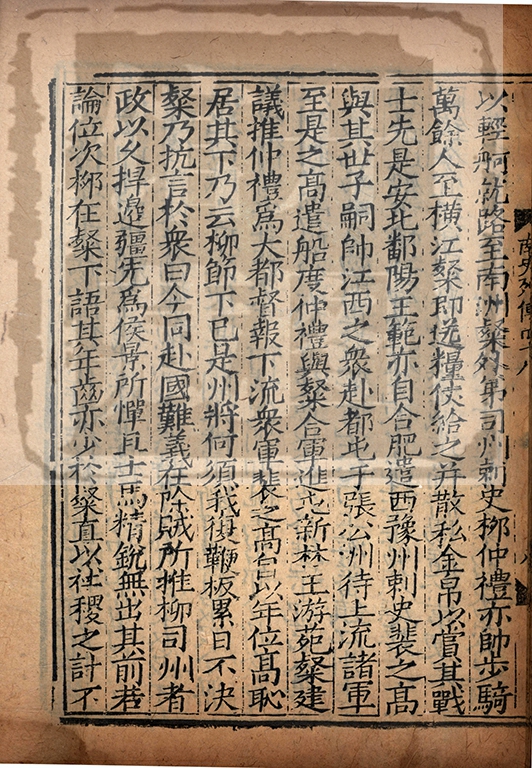 以輕舸就路至南洲粲外弟司州刺史柳仲禮亦帥步騎
萬餘人至橫江粲即送糧仗給之并散私金帛以賞其戰
士先是安北鄱陽王範亦自合肥遣西豫州刺史裴之高
與其世子嗣帥江西之衆赴都屯于張公洲待上流諸軍
至是之高遣船度仲禮與粲合軍進屯新林王游苑粲建
議推仲禮爲大都督報下流衆軍裴之高自以年位高恥
居其下乃云柳節下已是州將何須我復鞭板累日不決
粲乃抗言於衆曰今同赴國難義在除賊所推柳司州者
政以久捍邊疆先爲侯景所憚且士馬精銳無出其前若
論位次柳在粲下語其年齒亦少於粲直以社稷之計不